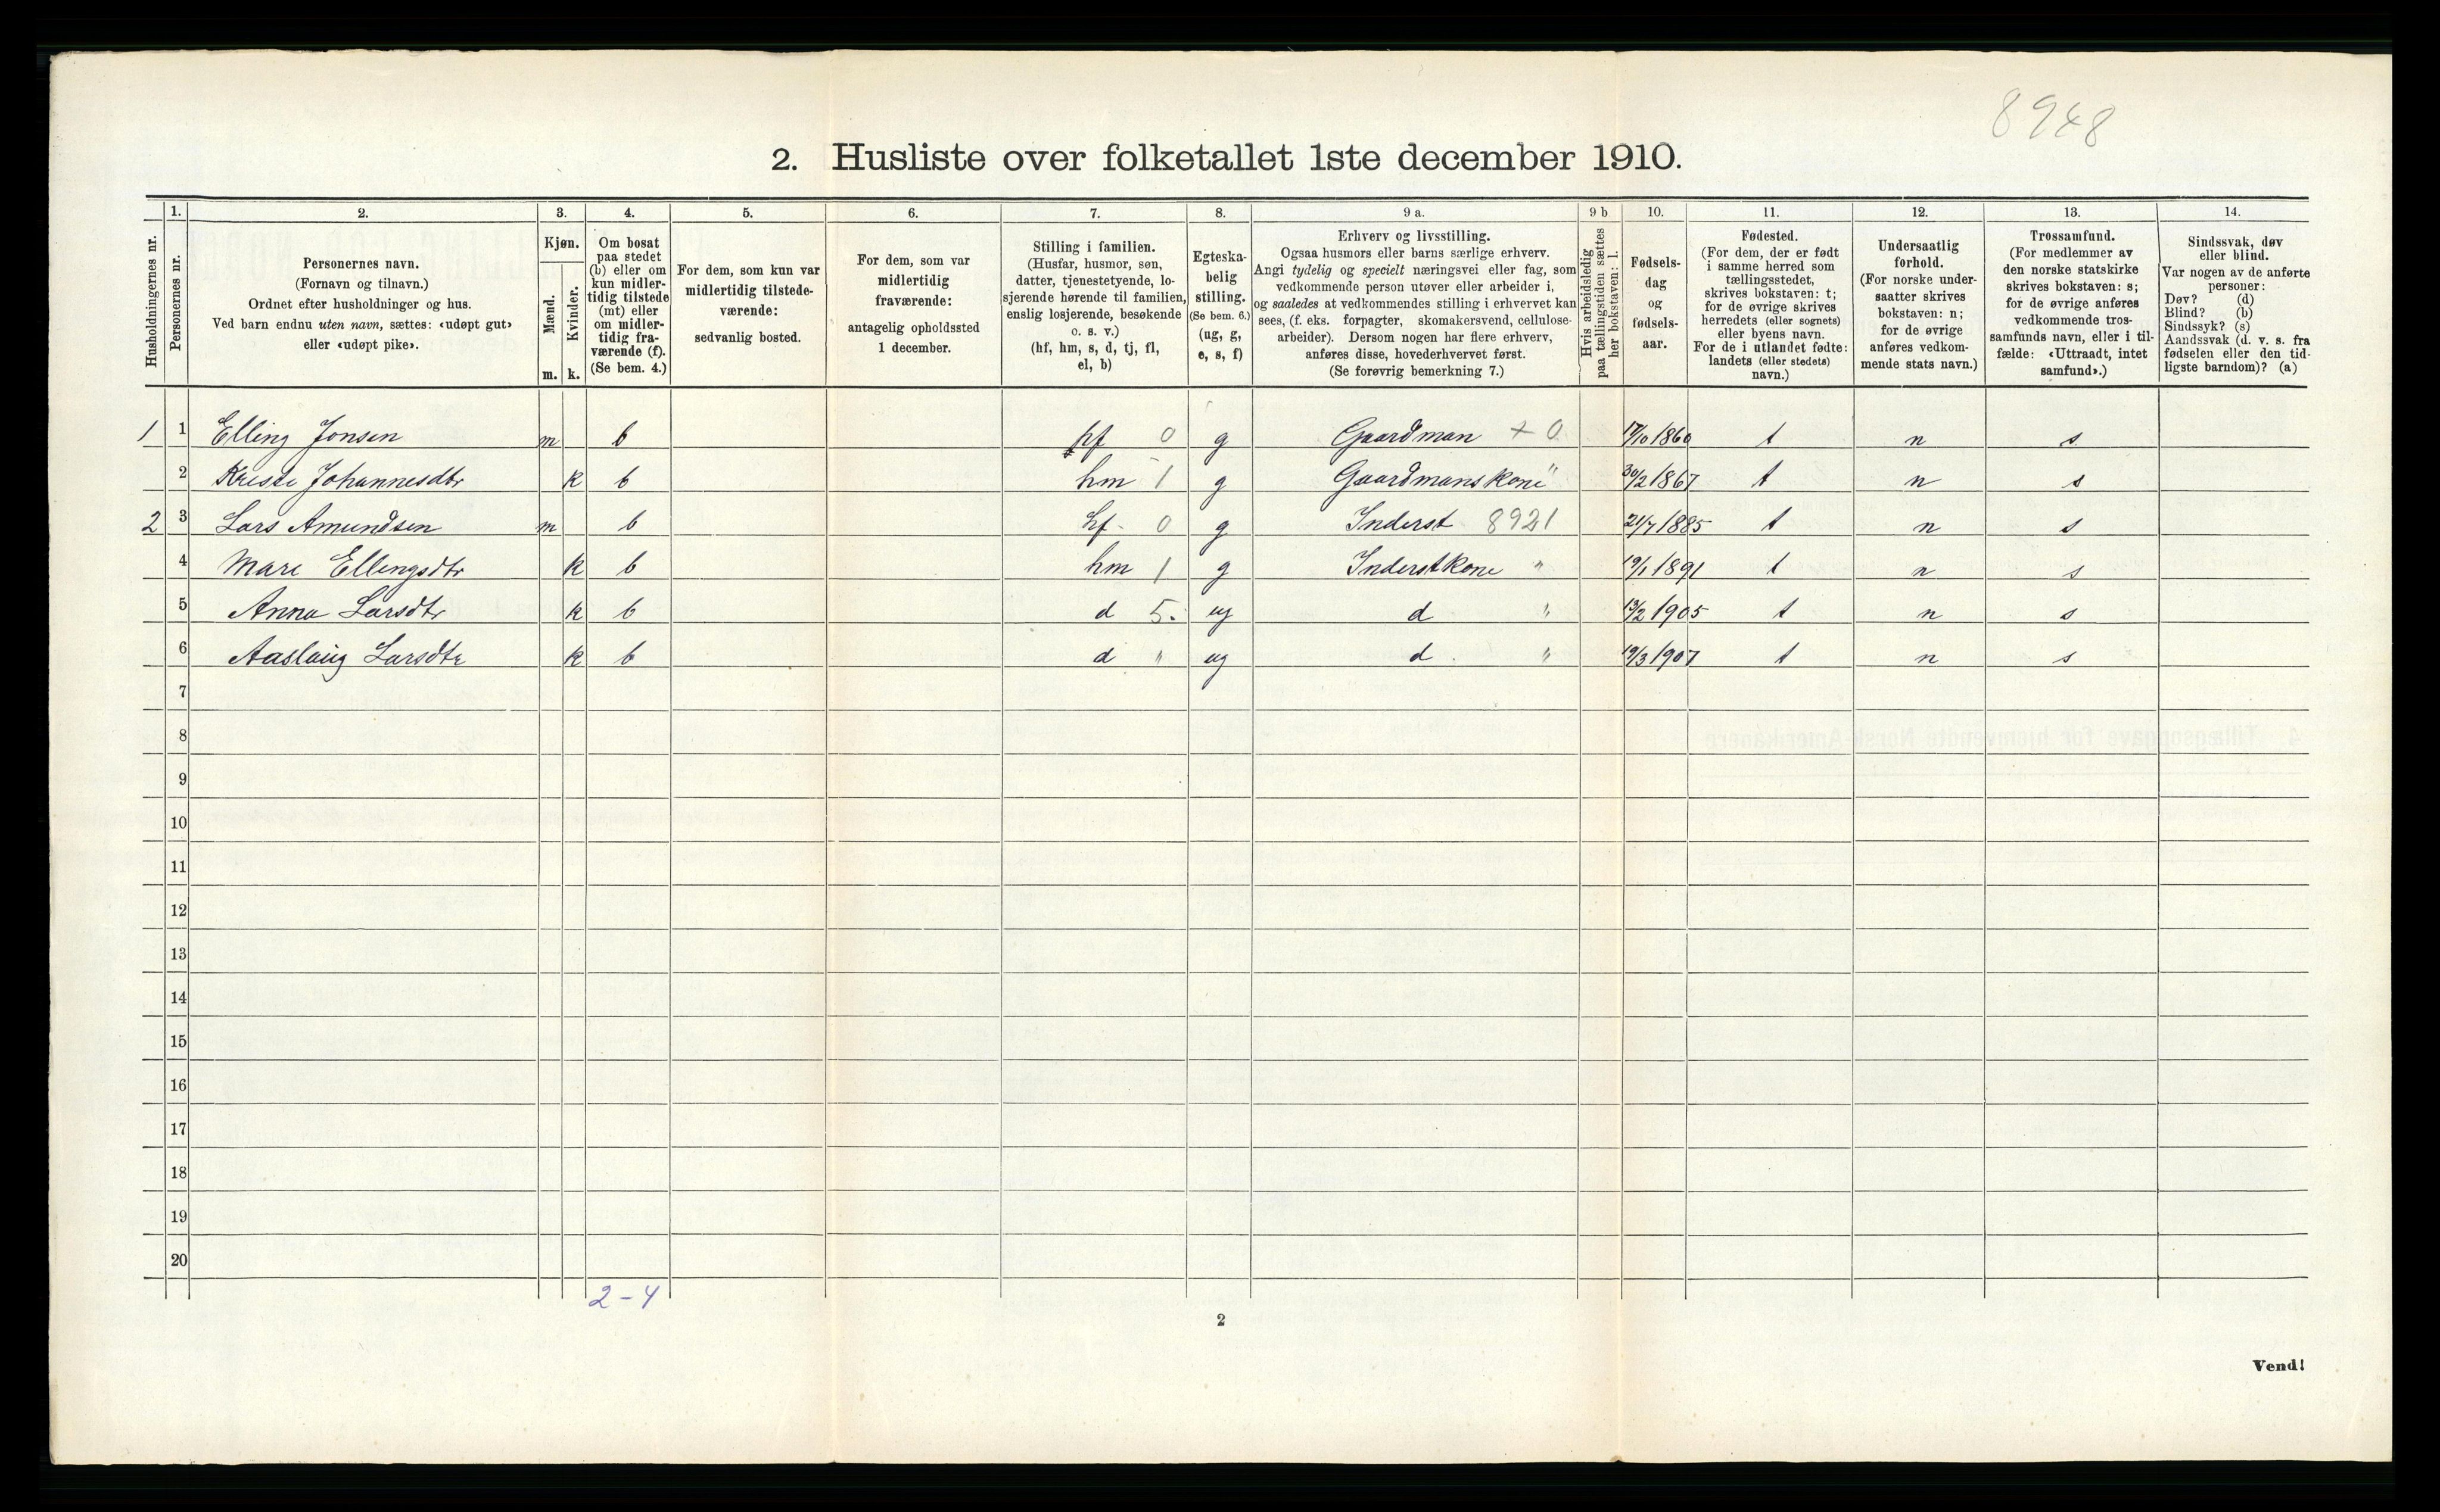 8948
2. Husliste over folketallet 1ste december 1910.
Husholdningernes nr.
1.
Personernes nr.
2.
Personernes navn.
(Fornavn og tilnavn.)
Ordnet efter husholdninger og hus.
Ved barn endnu uten navn, sættes: «udøpt gut»
eller «udøpt pike».
3.
Kjøn.
Mænd.
Kvinder.
m. k.
4.
Om bosat
paa stedet
(b) eller om
kun midler-
tidig tilstede
(mt) eller
om midler-
tidig fra-
værende (f).
(Se bem. 4.)
5.
For dem, som kun var
midlertidig tilstede-
værende:
sedvanlig bosted.
6.
For dem, som var
midlertidig
fraværende:
antagelig opholdssted
1 december.
7.
Stilling i familien.
(Husfar, husmor, søn,
datter, tjenestetyende, lo-
sjerende hørende til familien,
enslig losjerende, besøkende
o. s. v.)
(hf, hm, s, d, tj, fl,
el, b)
8.
Egteska-
belig
stilling.
(Se bem. 6.)
(ug, g,
e, s, f)
9 a.
Erhverv og livsstilling.
Ogsaa husmors eller barns særlige erhverv.
Angi tydelig og specielt næringsvei eller fag, som
vedkommende person utøver eller arbeider i,
og saaledes at vedkommendes stilling i erhvervet kan
sees, (f. eks. forpagter, skomakersvend, cellulose-
arbeider). Dersom nogen har flere erhverv,
anføres disse, hovederhvervet først.
(Se forøvrig bemerkning 7.)
9 b
Hvis arbeidsledig
paa tællingstiden sættes
her bokstaven: l.
10.
Fødsels-
dag
og
fødsels-
aar.
11.
Fødested.
(For dem, der er født
i samme herred som
tællingsstedet,
skrives bokstaven: t;
for de øvrige skrives
herredets (eller sognets)
eller byens navn.
For de i utlandet fødte:
landets (eller stedets)
navn.)
12.
Undersaatlig
forhold.
(For norske under-
saatter skrives
bokstaven: n;
for de øvrige
anføres vedkom-
mende stats navn.)
13.
Trossamfund.
(For medlemmer av
den norske statskirke
skrives bokstaven: s;
for de øvrige anføres
vedkommende tros-
samfunds navn, eller i til-
fælde: «Uttraadt, intet
samfund».)
14.
Sindssvak, døv
eller blind.
Var nogen av de anførte
personer:
Døv? (d)
Blind? (b)
Sindssyk? (s)
Aandssvak (d. v. s. fra
fødselen eller den tid-
ligste barndom)? (a)
1 1 Elling Jonsen m b hf 0 g Gaardman + 0 17/10 1860 t n s
2 Kriste Johannesdtr k b hm 1 g Gaardmanskone " 30/2 1867 t n s
2 3 Lars Amundsen m b hf 0 g Inderst 8921 21/7 1885 t n s
4 Mari Ellingsdtr k b hm 1 g Inderstkone " 19/1 1891 t n s
5 Anna Larsdtr k b d 5. ug d " 13/2 1905 t n s
6 Aaslaug Larsdtr k b d " ug d " 19/3 1907 t n s
7
8
9
10
11
12
13
14
15
16
17
18
19
20
2-4
2
Vend!